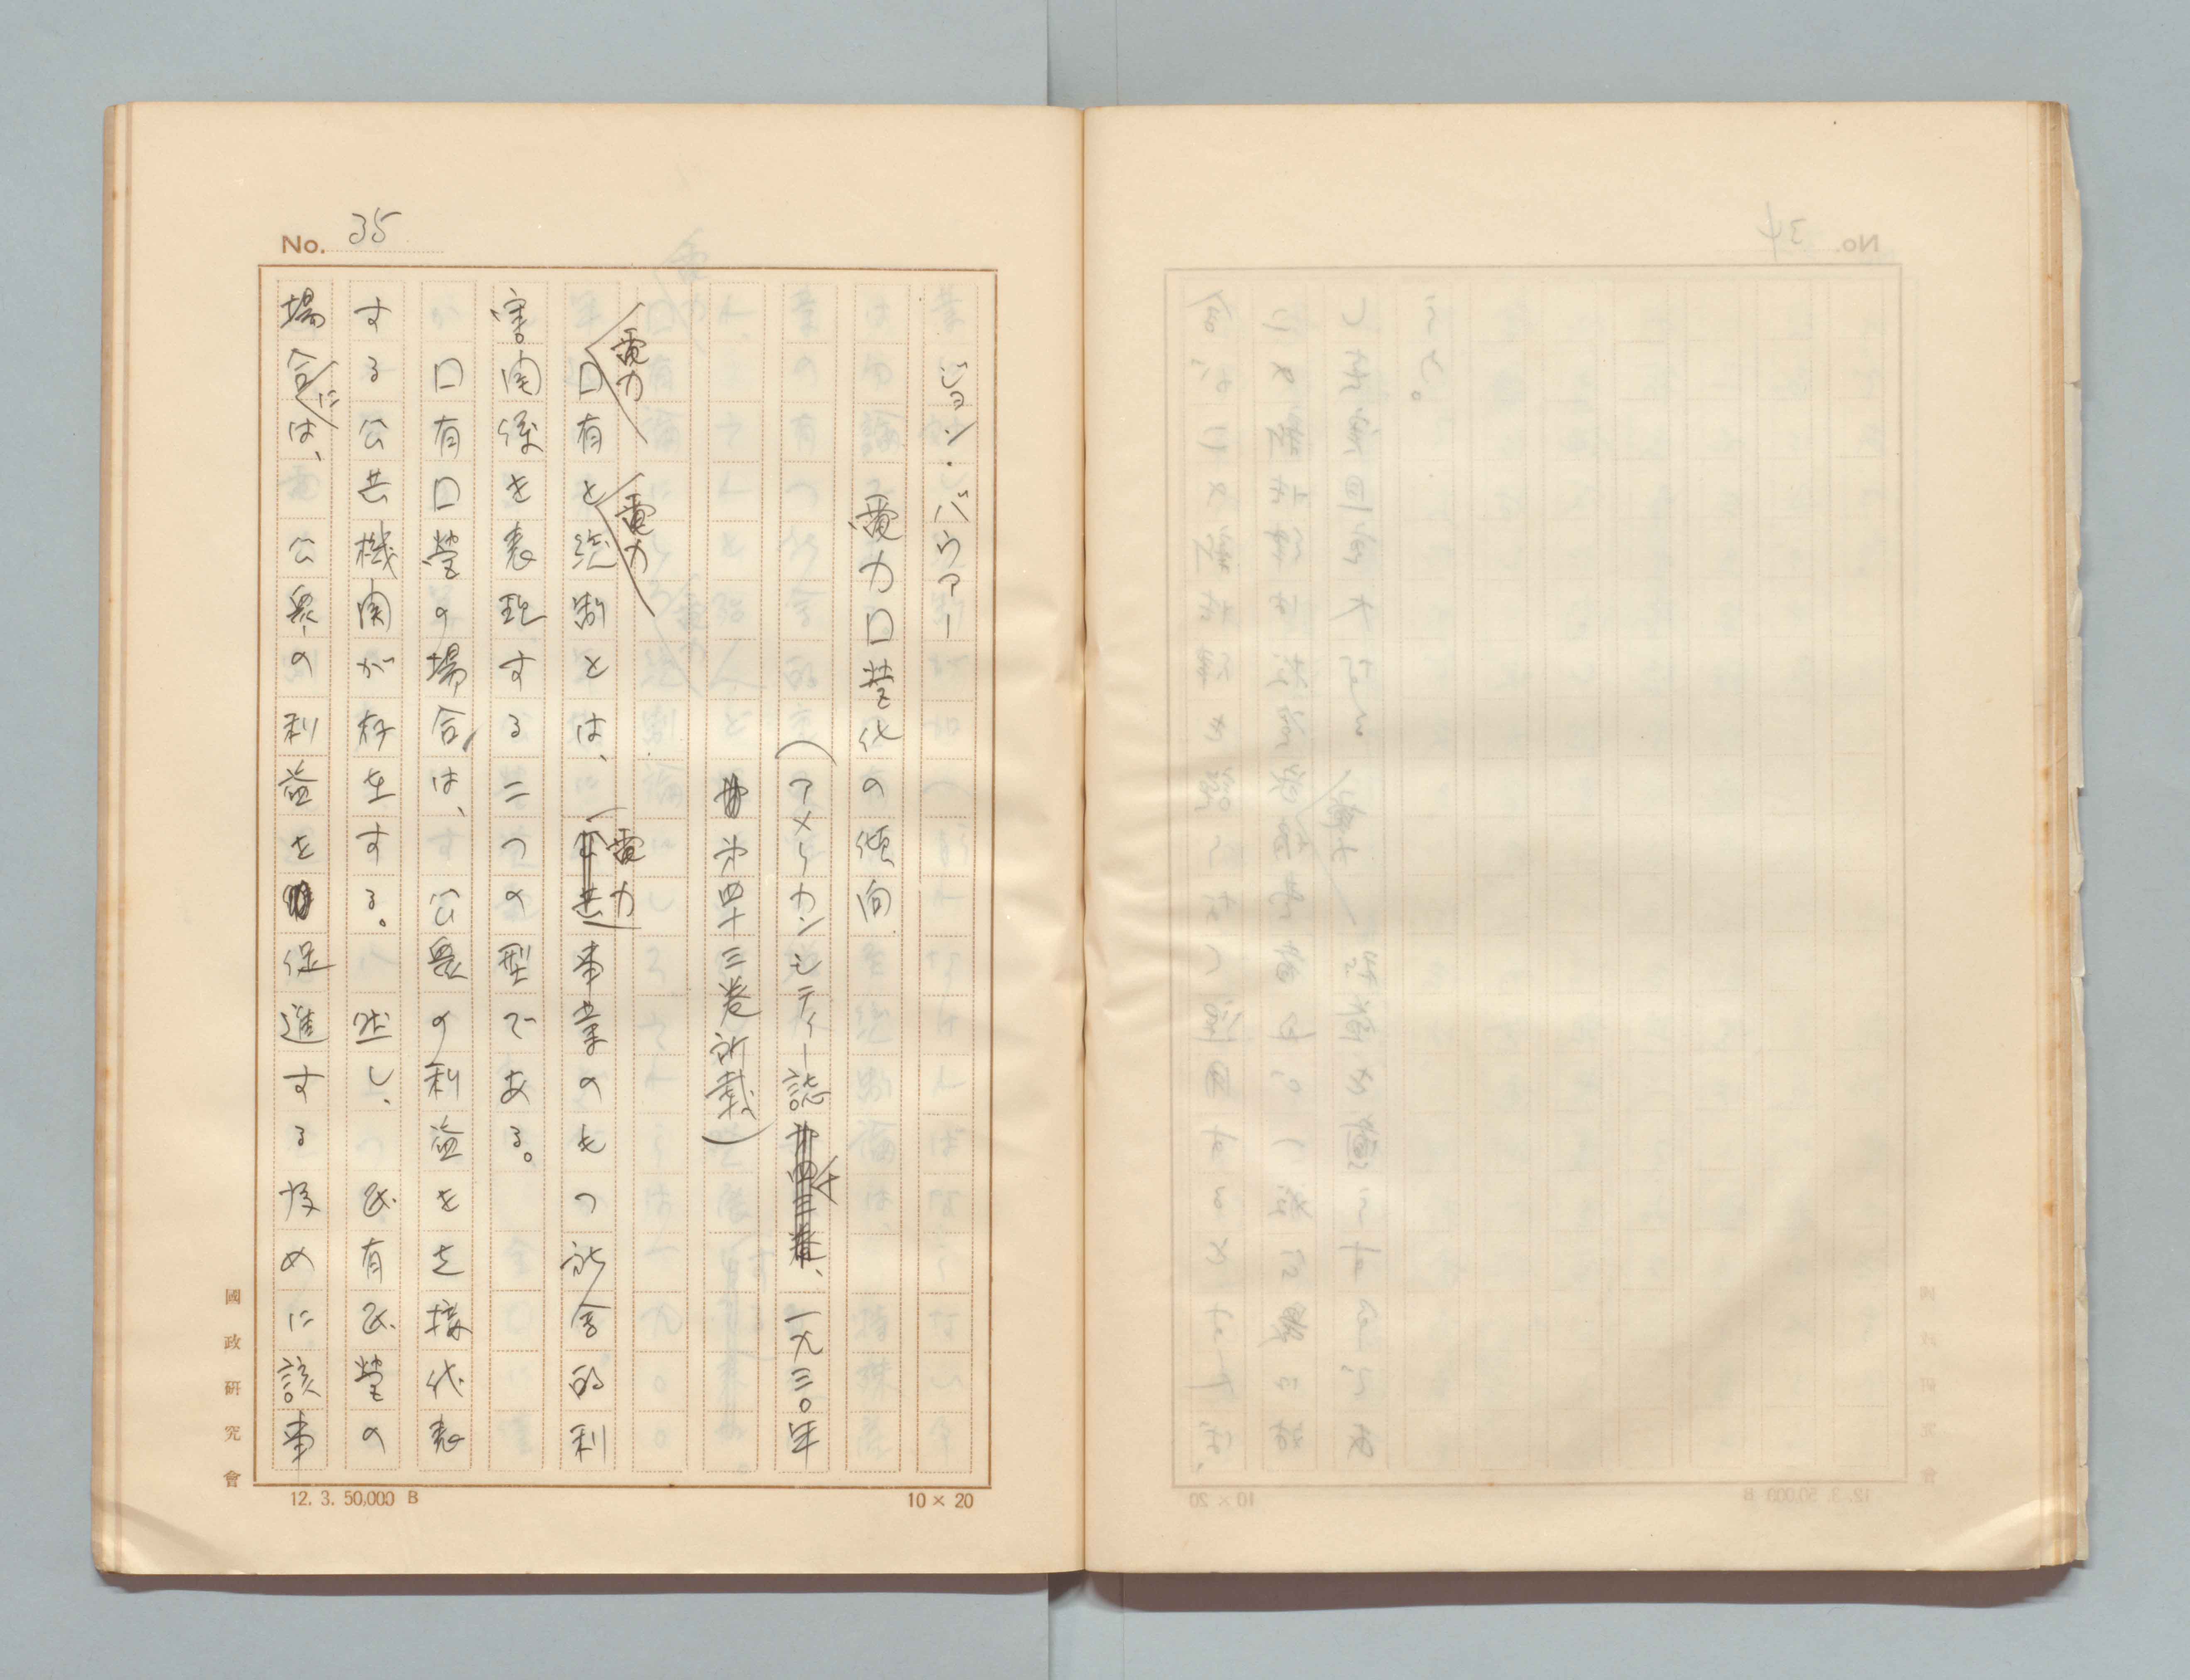 No. 35
ジヨン・バウアー
電力囗営化の傾向
(アメリカンシティー誌 、一九三〇年
第四十三巻所載)
電力囗有と電力統制とは、電力事業のもつ社会的利
害関係を表現する二つの型である。
囗有囗営の場合は、公衆の利益を直接代表
する公共機関が存在する。然し、民有民営の
場合には、公衆の利益を促進する為めに該事
國政研究會
12. 3. 50,000 B
10×20